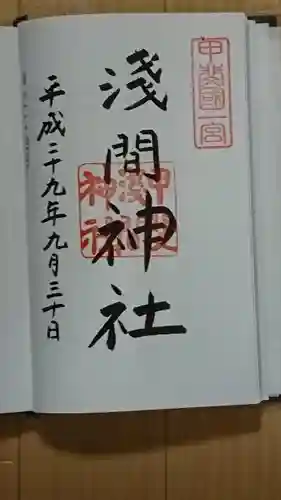 甲斐國一宮
淺間神社
平成二十九年九月三十日